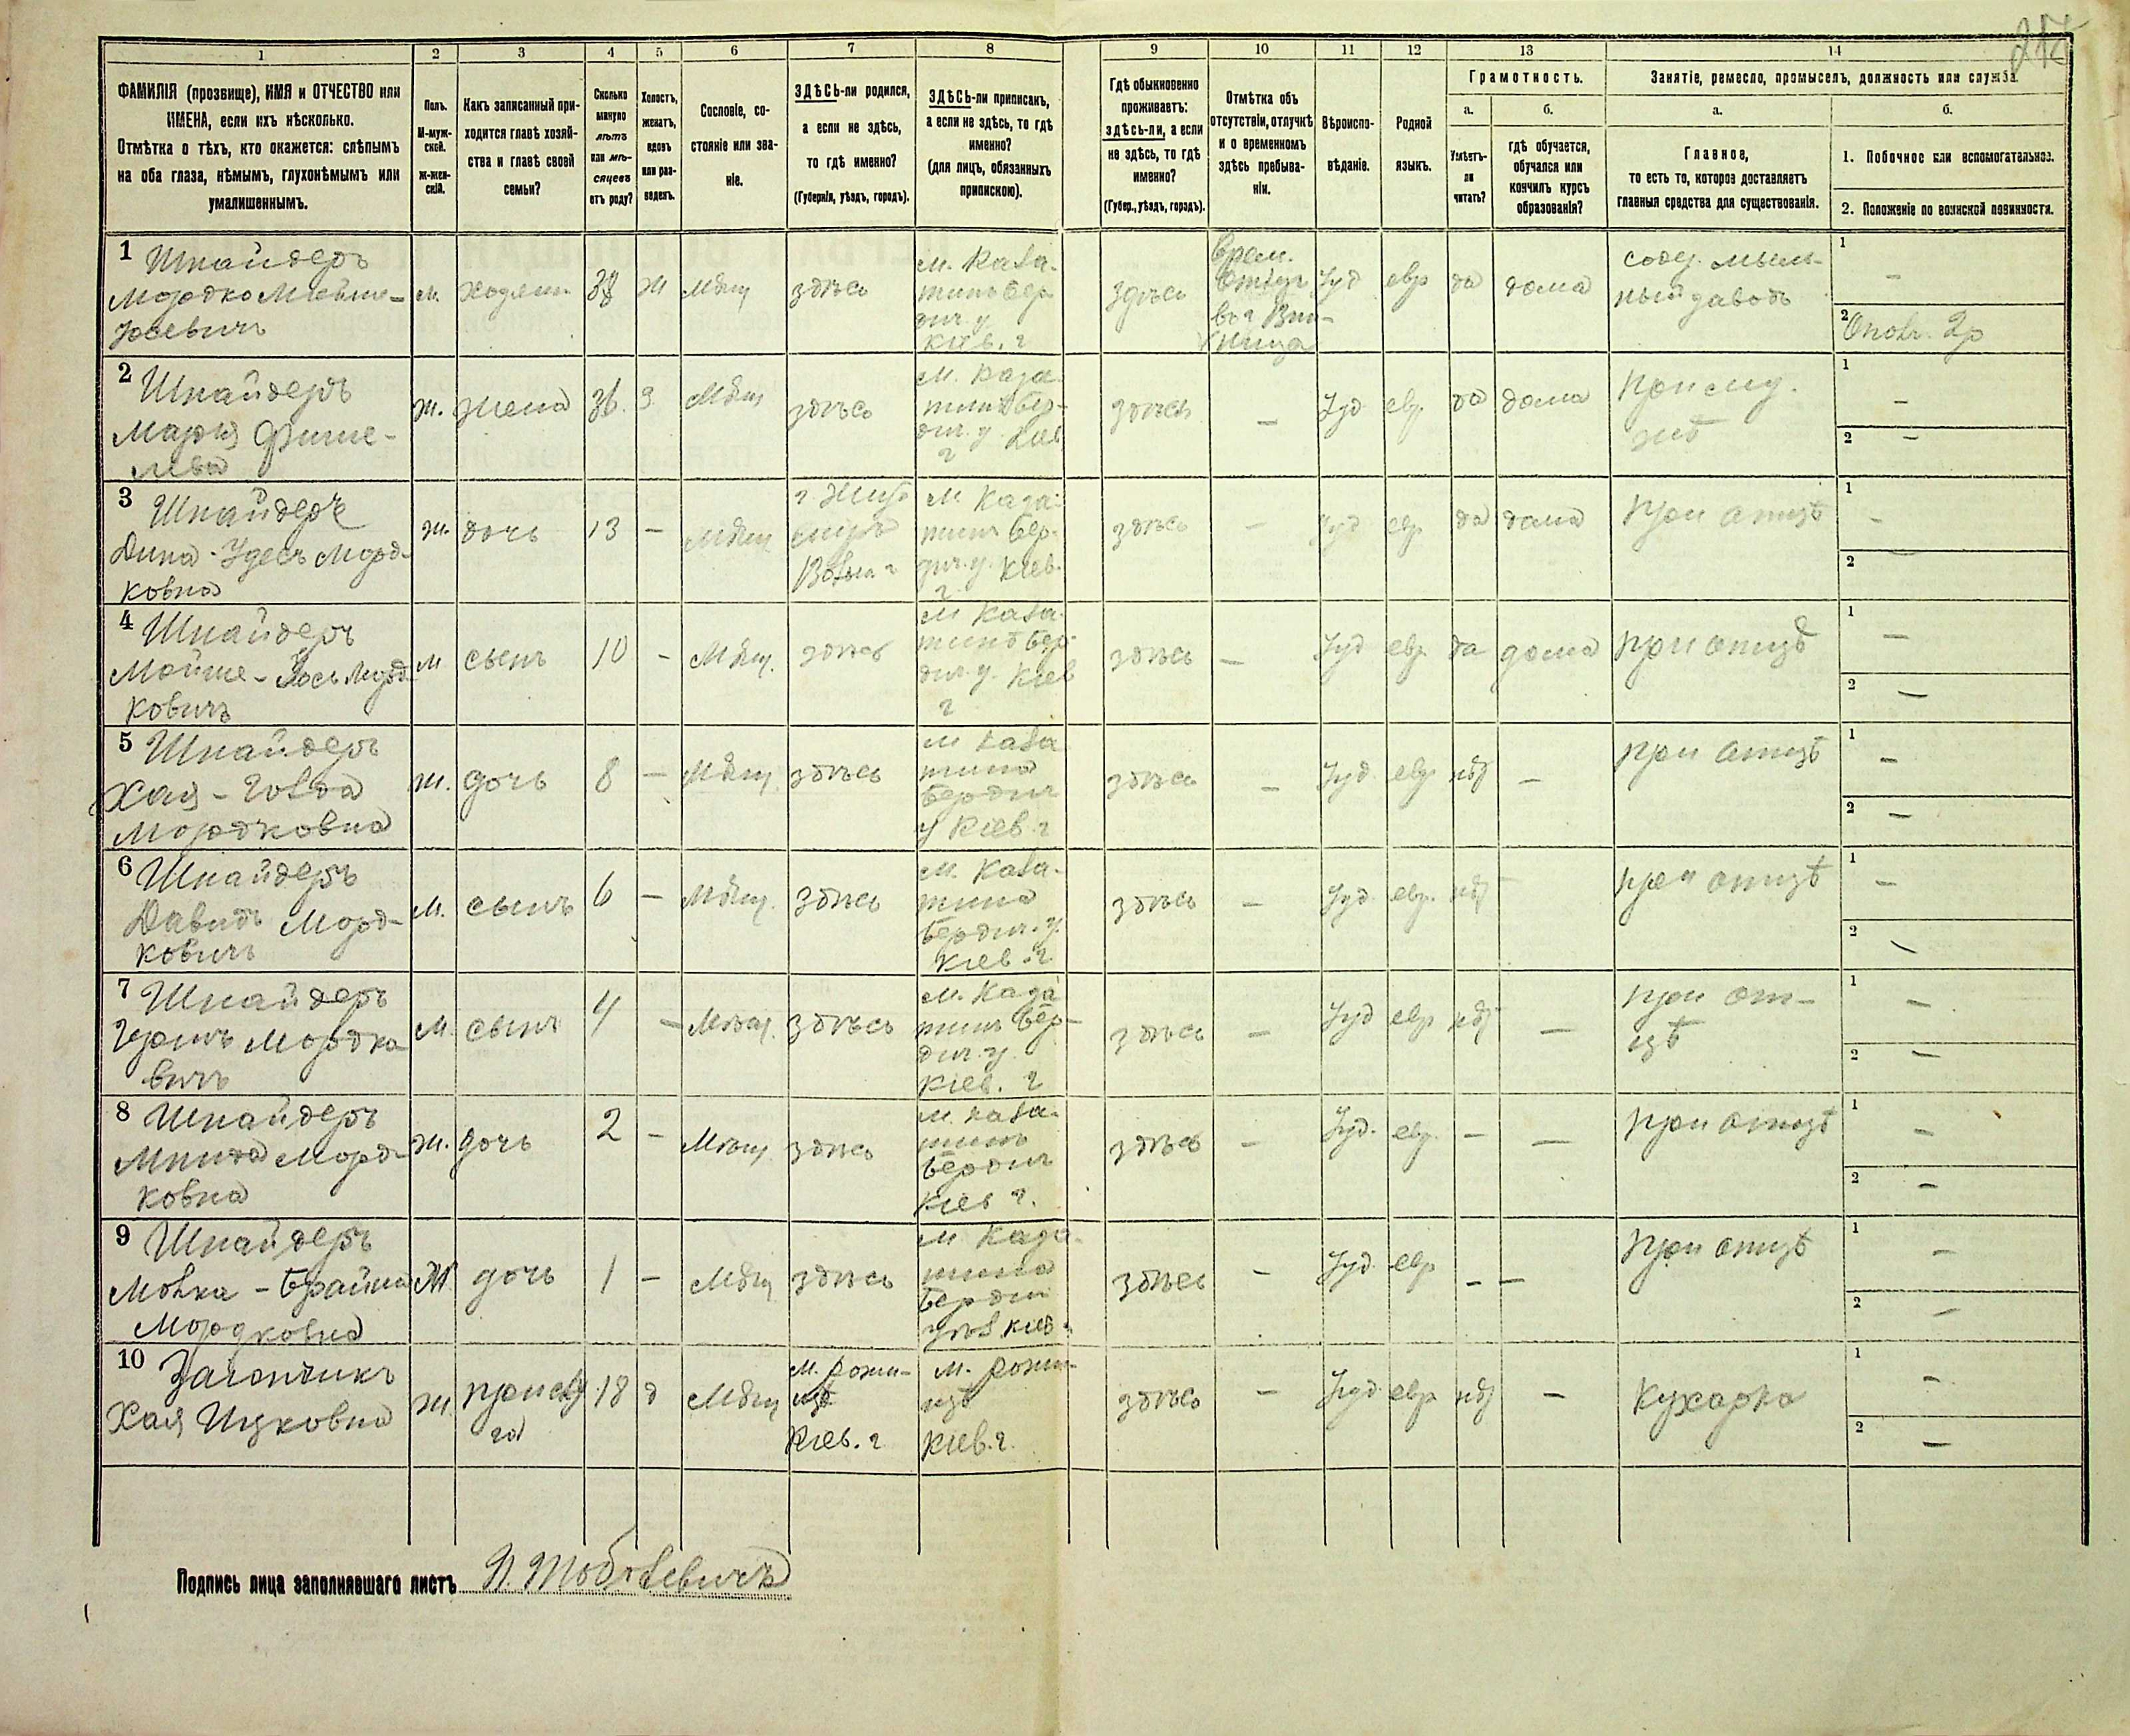 1 2 3 4 5 6 7 8 9 10 11 12 13 14
ФАМИЛІЯ (прозвище), ИМЯ и ОТЧЕСТВО или
ИМЕНА, если ихъ нѣсколько.
Отмѣтка о тѣхъ, кто окажется: слѣпымъ
на оба глаза, нѣмымъ, глухонѣмымъ или
умалишеннымъ.
Полъ.
М-муж-
ской.
Ж-жен-
скій.
Какъ записанный при-
ходится главѣ хозяй-
ства и главѣ своей
семьи?
Сколько
минуло
лѣтъ
или мѣ-
сяцевъ
отъ роду?
Холостъ,
женатъ,
вдовъ
или раз-
веденъ.
Сословіе, со-
стояніе или зва-
ніе.
ЗДѢСЬ-ли родился,
а если не здѣсь,
то гдѣ именно?
(Губернія, уѣздъ, городъ).
ЗДѢСЬ-ли приписанъ,
а если не здѣсь, то гдѣ
именно?
(для лицъ, обязанныхъ
припискою).
Гдѣ обыкновенно
проживаетъ:
здѣсь-ли, а если
не здѣсь, то гдѣ
именно?
(Губер., уѣздъ, городъ).
Отмѣтка объ
отсутствіи, отлучкѣ
и о временномъ
здѣсь пребыва-
ніи.
Вѣроиспо-
вѣданіе.
Родной
языкъ.
Грамотность.
а.
Умѣетъ-
ли
читать?
б.
гдѣ обучается,
обучался или
кончилъ курсъ
образованія?
Занятіе, ремесло, промыселъ, должность или служба.
а.
Главное,
то есть то, которое доставляетъ
главныя средства для существованія.
б.
1. Побочное или вспомогательное.
2. Положеніе по воинской повинности.
1 Шнайдеръ
Мордко
м. хозяин 38 ж Мѣщ здѣсь
м. Каза-
тинъ Бер
дич. у
Кіев. г
здѣсь
Врем.
въ г Вин-
ница
Іуд евр да дома
содер. мыль-
ный заводъ
1 –
2 Опол. 2р
2 Шнайдеръ
Марья Фише-
лева
ж. жена 36. З Мѣщ здѣсь
м. Каза-
тинъ Бер-
дич. у Кіев
г
здѣсь – Іуд евр. да дома
При му-
жѣ
1 –
2 –
3 Шнайдеръ
Дина - Удесь Морд-
ковна
ж. дочь 13 – мѣщ
г. Жито
миръ
Волын г
м Каза-
тин Бер-
дич. у. Кіев.
г
здѣсь – Іуд евр. да дома
При отцѣ
1 –
2
4 Шнайдеръ
Мойше - Іось Морд-
ковичъ
м сынъ 10 – Мѣщ. здѣсь
м Каза-
тинъ Бер-
дич. у. Кіев
г
здѣсь – Іуд евр. да дома
при отцѣ
1 –
2 –
5 Шнайдеръ
Хая - Голда
Мордковна
ж. дочь 8 – Мѣщ. здѣсь
м Каза
тина
Бердич
у Кіев. г
здѣсь – Іуд. евр нѣт –
при отцѣ
1 –
2 –
6 Шнайдеръ
Давидъ Морд-
ковичъ
м. сынъ 6 – Мѣщ. здѣсь
м. Каза-
тина
Бердич. у.
Кіев. г.
здѣсь – Іуд. евр. нѣт
при отцѣ
1 –
2 –
7 Шнайдеръ
Мордко
вичъ
м. сынъ 4 – Мѣщ. здѣсь
м. Каза
тинъ Бер-
дич. у.
Кіев. г
здѣсь – Іуд евр нѣт –
при от-
цѣ
1 –
2 –
8 Шнайдеръ
Морд-
ковна
ж. дочь 2 – Мѣщ. здѣсь
м. Каза-
тинъ
Бердич
Кіев г.
здѣсь – Іуд. евр. – –
при отцѣ
1 –
2 –
9 Шнайдеръ
Мордковна
ж. дочь 1 – Мѣщ здѣсь
м Каза-
тина
Бердич
Кіев г
здѣсь – Іуд евр – –
при отцѣ
1 –
2 –
10
Хая Ицковна
ж. прислу 18 д Мѣщ
га
м. Рожи-
Кіев. г
м. Рожи-
Кіев. г.
здѣсь – Іуд евр нѣт –
Кухарка
1 –
2 –
Подпись лица заполнявшаго листъ